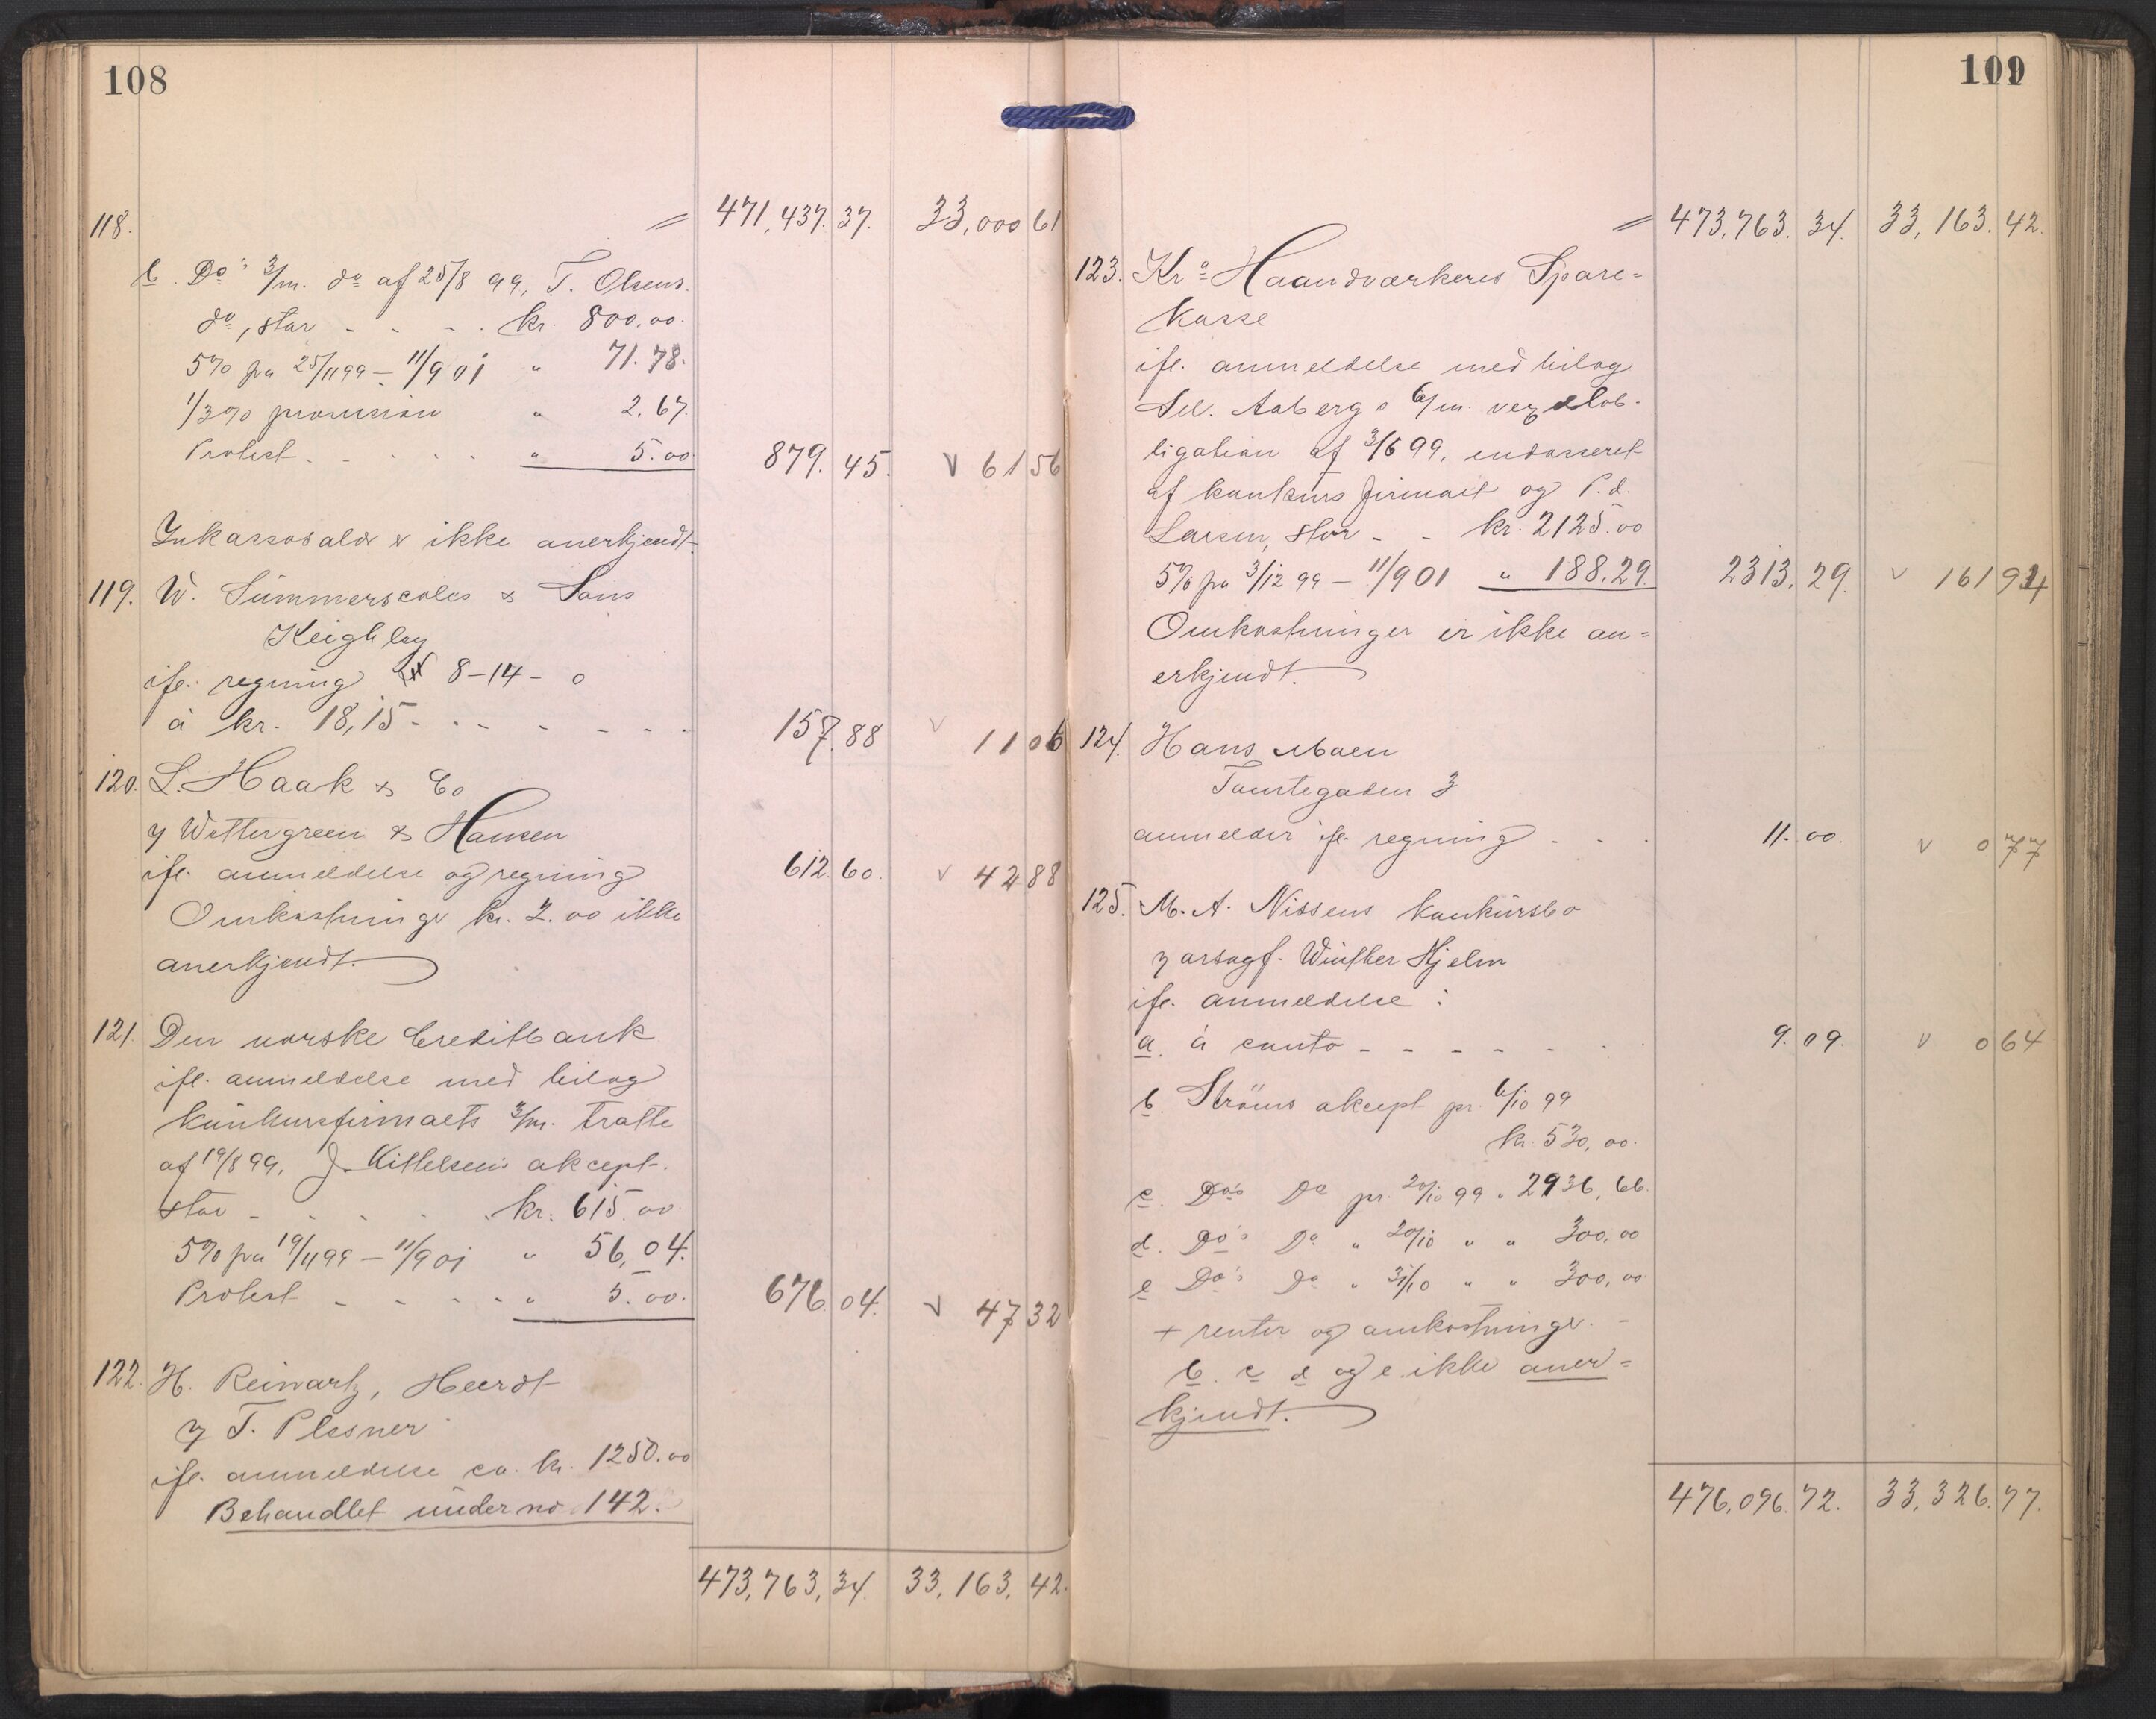 108
118. = 471,437.37. 33,000 61
b. Do's 3/m. do af 25/8 99, T. Olsens.
do, stor - - - kr. 800.00.
5% fra 25/11 99 - 11/9 01 " 71.78.
1/3% provision " 2.67.
Protest - - - - - " 5.00 879.45. v 61 56
Inkassosalær er ikke anerkjendt.
119. W. Summerscales & Sons
Keighley
ifl. regning £ 8-14-0
à kr. 18,15 - - - - - - 157.88 v 11 06
120. L. Haak & Co
v/ Wettergreen & Hansen
ifl. anmeldelse og regning 612.60. v 42 88
Omkostninger kr. 2.00 ikke
anerkjendt.
121. Den norske Creditbank
ifl. anmeldelse med bilag
konkursfirmaets 3/m. tratte
af 19/8 99, J. Kittelsens akcept.
stor - - - - kr. 615.00
5% fra 19/11 99 - 11/9 01 " 56,04.
Protest - - - - - " 5.00. 676.04. v 47 32
122. H. Reinartz, Heerdt
v/ T. Plesner
ifl. anmeldelse ca. kr. 1250.00
Behandlet under no 142.
473,763,34. 33,163,42.
109
= 473,763.34. 33,163.42.
123. Kra Haandværkeres Spare=
kasse
ifl. anmeldelse med bilag
Sel. Aabergs 6/m. vexelob-
ligation af 3/6 99, endosseret
af konkursfirmaet og P. d.
Larsen, stor - - kr. 2125.00
5% fra 3/12 99 - 11/9 01 " 188.29. 2313.29. v 161 94
Omkostninger er ikke an=
erkjendt.
124. Hans Moen
Tomtegaden 3
anmelder ifl. regning - - - 11.00. v 0 77
125. M. A. Nissens konkursbo
v/ orsagf. Winther Hjelm
ifl. anmeldelse :
a. à conto - - - - - - 9.09. v 0 64
b. Ströms akcept pr. 6/10 99
kr. 530,00.
c. Do's Do pr. 20/10 99 " 2936,66.
d. Do's Do " 20/10 " " 300,00
e Do's Do " 31/10 " " 300,00
+ renter og omkostninger. -
b. c d og e ikke aner=
kjendt.
476,096.72. 33,326.77.